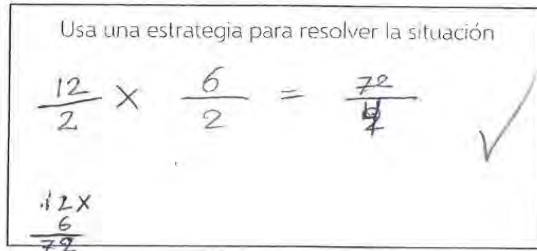 Usa una estrategia para resolver la situación
12/2 X 6/2 = 72/4
12 X
6
72